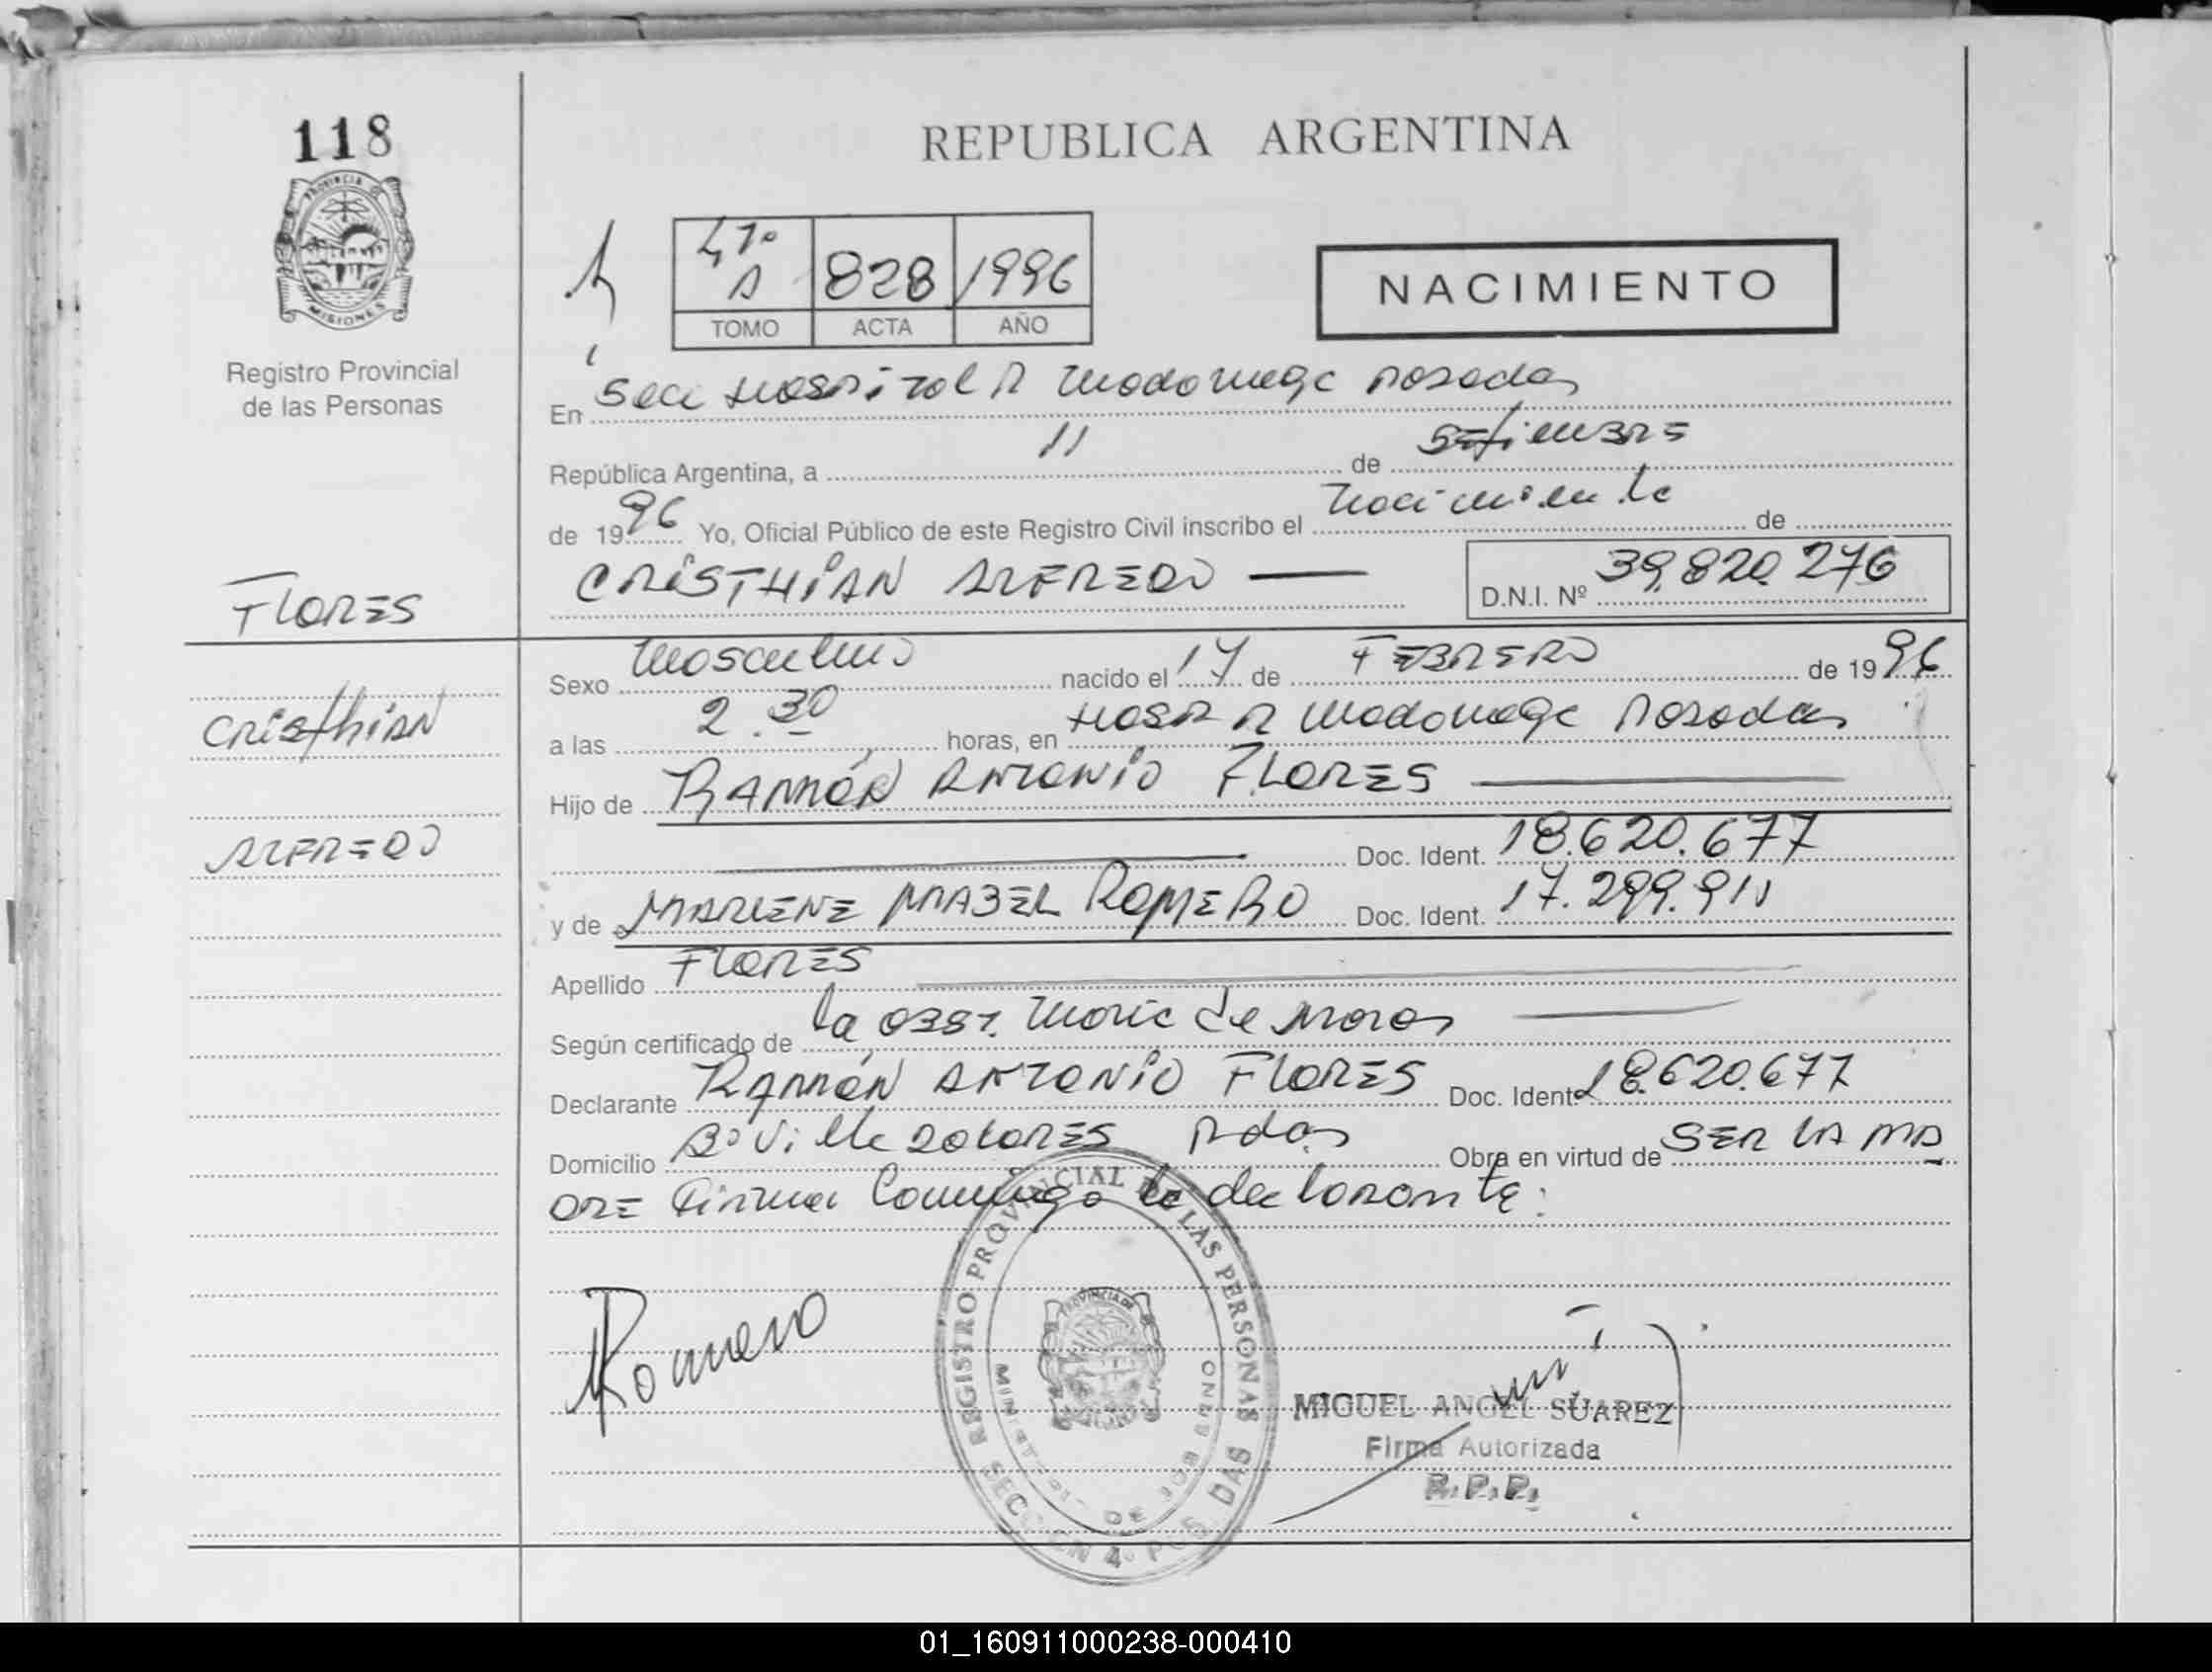 118
PROVINCIA DE
MISIONES
Registro Provincial
de las Personas
FLORES
CRISTHIAN
ALFREDO
REPUBLICA ARGENTINA
4to A 828 1996
TOMO ACTA AÑO
NACIMIENTO
En Secc Hospital R Madariaga Posadas
República Argentina, a 11 de SETIEMBRE
de 1996 Yo, Oficial Público de este Registro Civil inscribo el Nacimiento de
CRISTHIAN ALFREDO D.N.I. Nº 39.820.276
Sexo Masculino nacido el 17 de FEBRERO de 1996
a las 2.30 horas, en Hosp R Madariaga Posadas
Hijo de RAMÓN ANTONIO FLORES
Doc. Ident. 18.620.677
y de MARLENE MABEL ROMERO Doc. Ident. 17.299.911
Apellido FLORES
Según certificado de la OBST. Maria de Moras
Declarante RAMÓN ANTONIO FLORES Doc. Ident. 18.620.677
Domicilio Bº Ville DOLORES Pdas Obra en virtud de SER LA MA
DRE Firma Conmigo la declarante.
Romero
REGISTRO PROVINCIAL DE LAS PERSONAS
PROVINCIA DE
SECCION 4º POSADAS
MIGUEL ANGEL SUAREZ
Firma Autorizada
R.P.P.
01_160911000238-000410